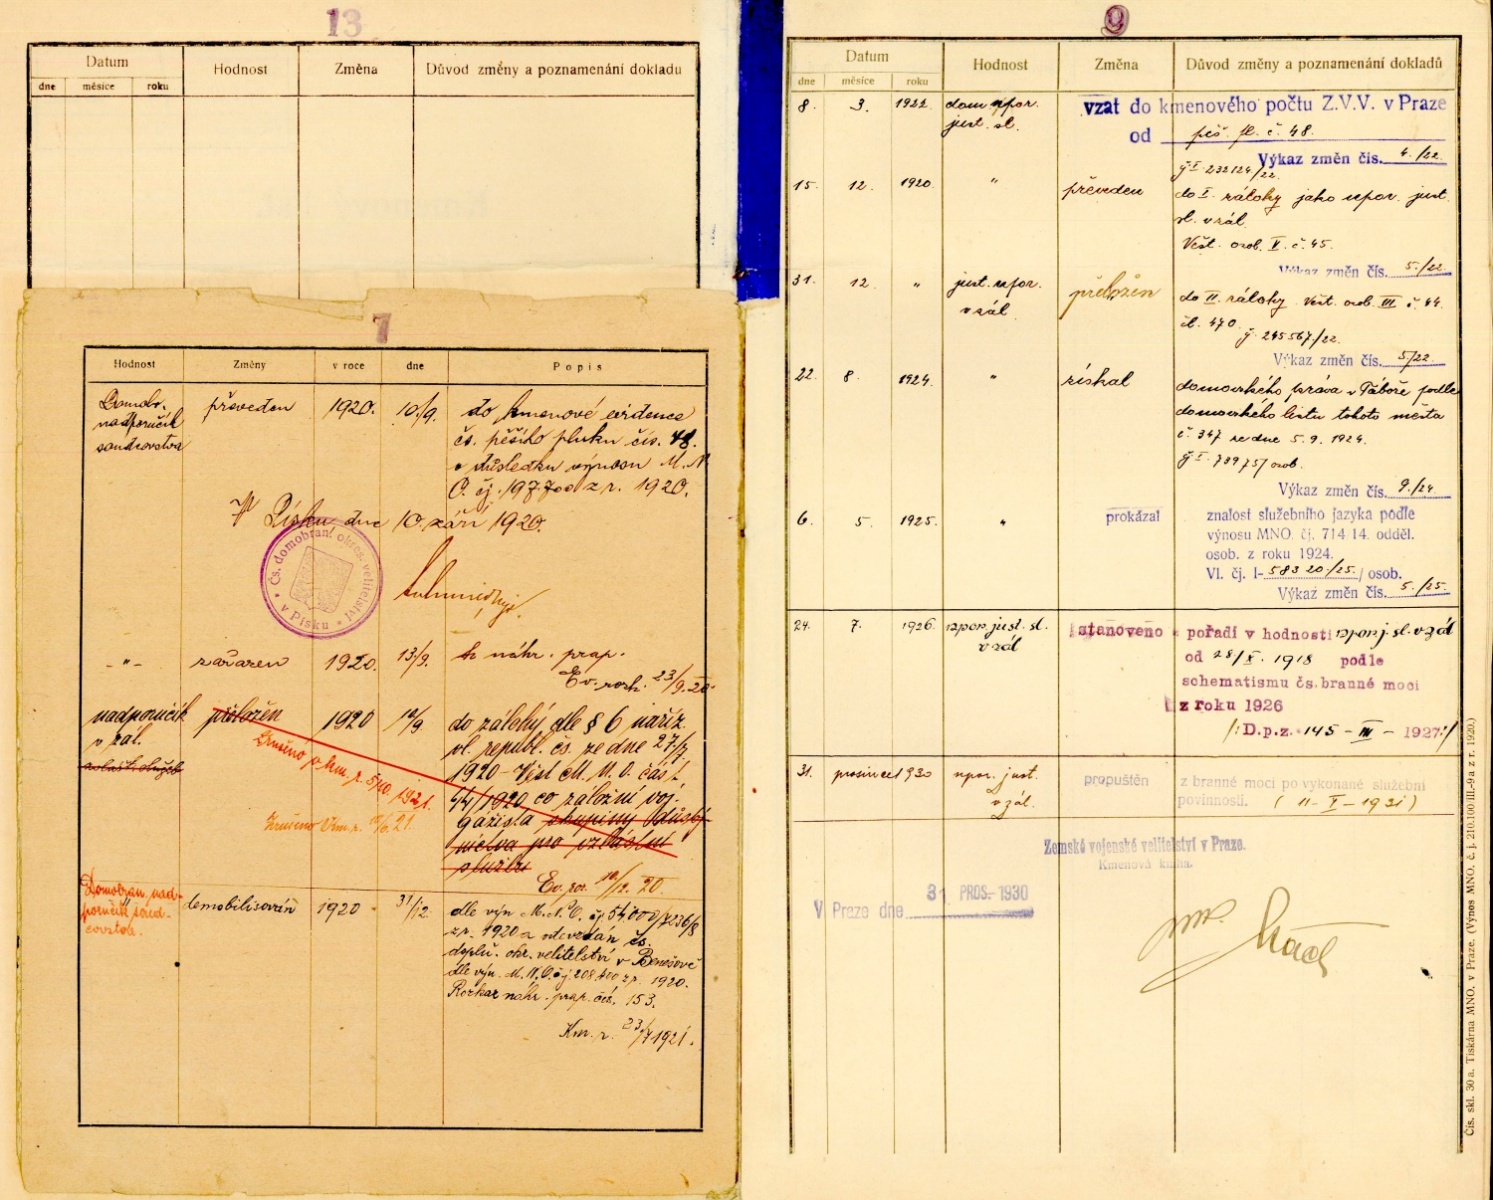 13
Datum
Hodnost
Změna
Důvod změny a poznamenání dokladu
dne
měsíce
roku
7
Hodnost
Změny
v roce
dne
Popis
Domobr.
nadporučík
soudcovstva
převeden
1920.
10./9.
do kmenové evidence
čs. pěšího pluku čís. 48.
v důsledku výnosu M.N.
O. čj. 197700 z r. 1920.
V Písku dne 10. září 1920.
Čs. domobran. okres. velitelství
v Písku
-"-
zařazen
1920.
13./9.
k náhr. prap.
Ev. rozk. 23/9. 20.
nadporučík
v zál.
přeložen
1920
12/9.
do zálohy dle § 6 naříz.
vl. republ. čs. ze dne 27./7.
1920 - Věst. M.N.O. část.
44/1920 co záložní voj.
gažista skupiny důstoj-
nictva pro zvláštní
službu
Zrušeno
1921.
Zrušeno
21.
Ev. roz. 10/12. 20.
Domobran. nad-
poručík soud-
covstva.
demobilisován
1920
31/12.
dle výn. M.N.O. čj. 54.000/7236/8
z r. 1920 a odevzdán čs.
doplň. okr. velitelství v Benešově
dle výn. M.N.O. čj. 208.400 z r. 1920.
Rozkaz náhr. prap. čís. 153.
Km. r. 23/7 1921.
9
Datum
Hodnost
Změna
Důvod změny a poznamenání dokladů
dne
měsíce
roku
8.
3.
1922.
dom. npor.
just. sl.
vzat do kmenového počtu Z.V.V. v Praze
od pěš. pl. č. 48.
Výkaz změn čís. 4./22.
15.
12.
1920.
"
převeden
čj. I. 232124/22.
do I. zálohy jako npor. just.
sl. v zál.
Věst. osob. II. č. 45.
Výkaz změn čís. 5./22.
31.
12.
"
just. npor.
v zál.
přeložen
do II. zálohy. Věst. osob. III. č. 44.
čl. 470.
čj. 245567/22.
Výkaz změn čís. 5/22.
22.
8.
1924.
"
získal
domovského práva v Táboře podle
domovského listu tohoto města
č. 347 ze dne 5. 9. 1924.
čj. I. 789757 osob.
Výkaz změn čís. 9./24
6.
5.
1925.
"
prokázal
znalost služebního jazyka podle
výnosu MNO. čj. 714/14. odděl.
osob. z roku 1924.
Vl. čj. I- 58320/25. / osob.
Výkaz změn čís. 5./25.
24.
7.
1926.
npor. just. sl.
v zál
stanoveno
pořadí v hodnosti npor. j. sl. v zál
od 28/X. 1918 podle
schematismu čs. branné moci
z roku 1926
/: D.p.z. 145 - III - 1927:/
31.
prosince
1930
npor. just.
v zál.
propuštěn
z branné moci po vykonané služební
povinnosti. (11-I-1931)
Zemské vojenské velitelství v Praze.
Kmenová kniha.
V Praze dne 31 PROS. 1930
Čís. skl. 30 a. Tiskárna MNO. v Praze. (Výnos MNO. č. j. 210.100/III.-9 a z r. 1920.)